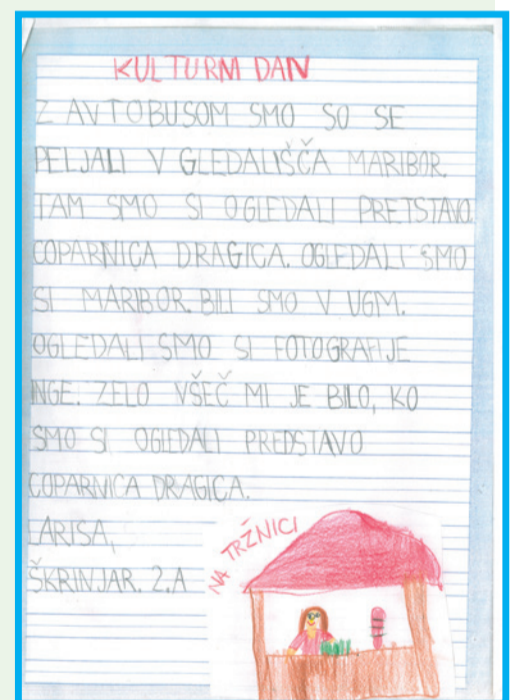 KULTURNI DAN
Z AVTOBUSOM SMO SO SE
PELJALI V GLEDALIŠČA MARIBOR.
TAM SMO SI OGLEDALI PRETSTAVO
COPARNICA DRAGICA. OGLEDALI SMO
SI MARIBOR. BILI SMO V UGM.
OGLEDALI SMO SI FOTOGRAFIJE
INGE. ZELO VŠEČ MI JE BILO, KO
SMO SI OGLEDALI PREDSTAVO
COPARNICA DRAGICA.
LARISA,
ŠKRINJAR. 2.A
NA TRŽNICI